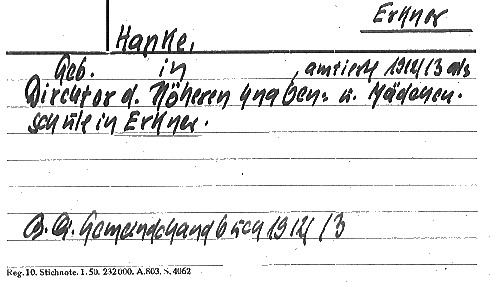 Erkner
Hanke,
Geb. in , amtiert 1912/3 als
Direktor d. Höheren Knaben- u. Mädchen-
schule in Erkner.
B. A. Gemeindehandbuch 1912/3
Reg. 10. Stichnote. 1. 50. 232000. A.803. S. 4062